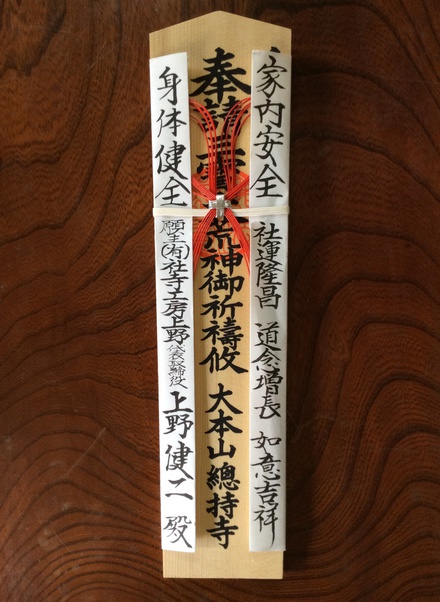 家内安全 社運隆昌 道念増長 如意吉祥
奉請三寶荒神御祈禱攸 大本山總持寺
身体健全 願主(有)社寺工房上野 代表取締役 上野健二 殿